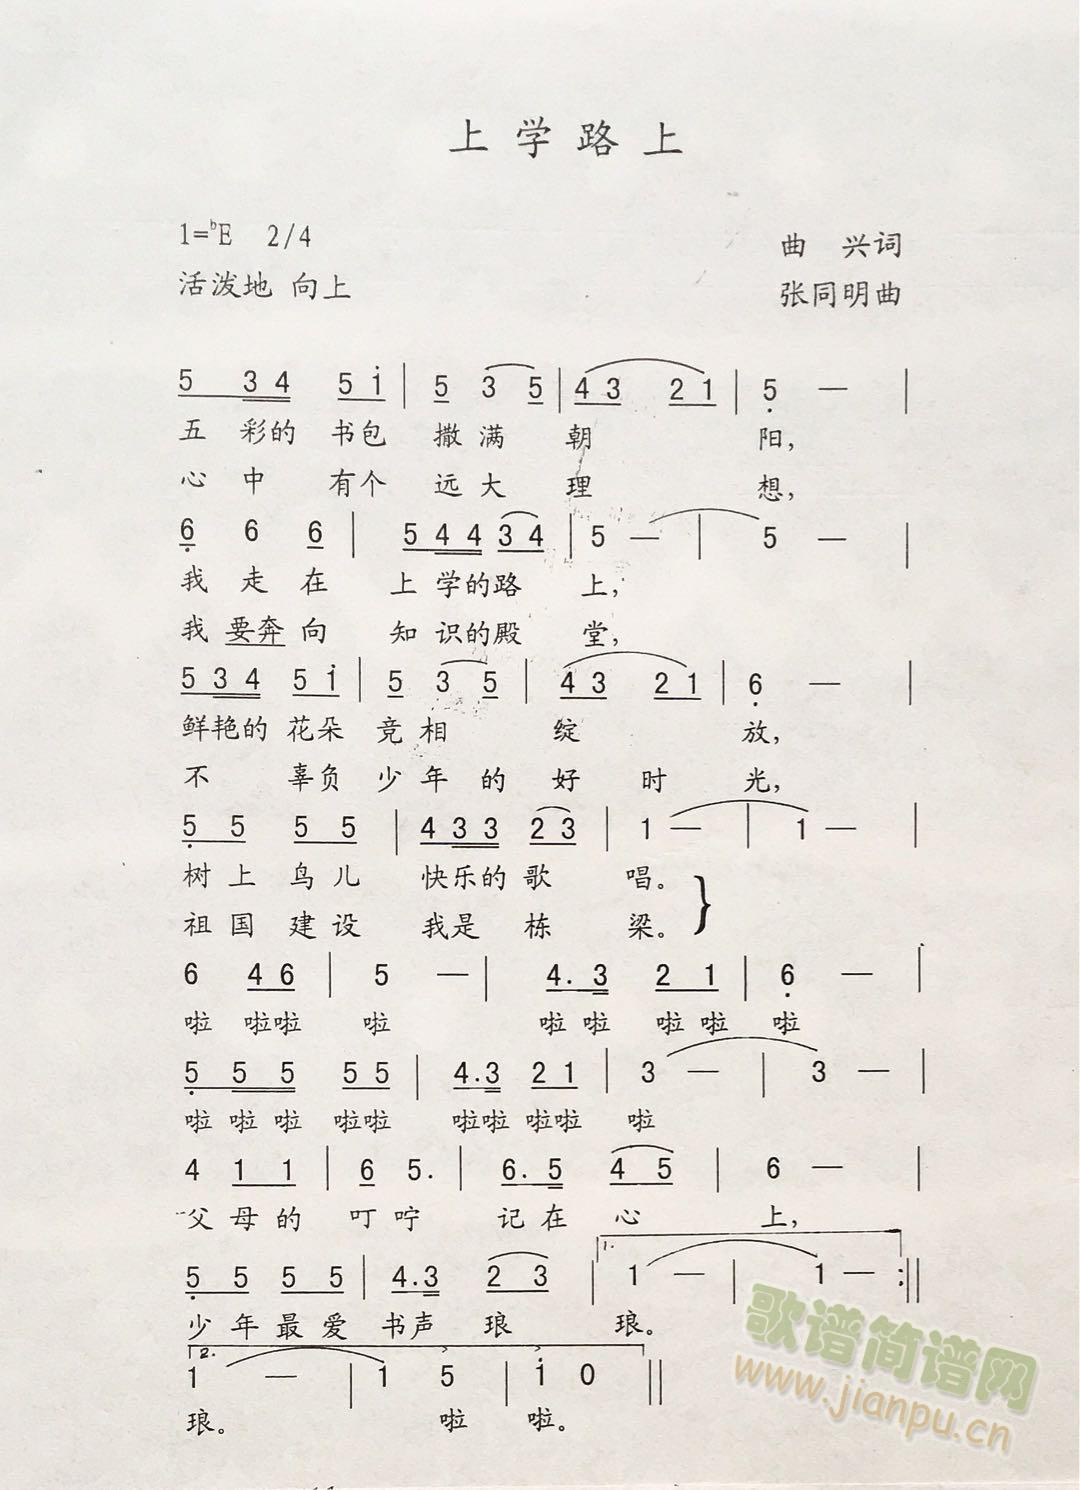 上学路上
1=ᵇE 2/4
曲 兴词
活泼地 向上
张同明曲
5 3 4 5 i | 5 3 5 | 4 3 2 1 | 5 — |
五 彩的 书包 撒 满 朝 阳，
心 中 有个 远 大 理 想，
6 6 6 | 5 4 4 3 4 | 5 — | 5 — |
我 走 在 上 学的路 上，
我 要奔 向 知 识的殿 堂，
5 3 4 5 i | 5 3 5 | 4 3 2 1 | 6 — |
鲜艳的 花朵 竞 相 绽 放，
不 辜负 少 年 的 好 时 光，
5 5 5 5 | 4 3 3 2 3 | 1 — | 1 — |
树 上 鸟 儿 快乐的 歌 唱。
祖 国 建 设 我是 栋 梁。
6 4 6 | 5 — | 4. 3 2 1 | 6 — |
啦 啦啦 啦 啦 啦 啦 啦 啦
5 5 5 5 5 | 4. 3 2 1 | 3 — | 3 — |
啦 啦 啦 啦啦 啦啦 啦啦 啦
4 1 1 | 6 5. | 6. 5 4 5 | 6 — |
父 母 的 叮 咛 记 在 心 上，
1.
5 5 5 5 | 4. 3 2 3 | 1 — | 1 — :||
少 年 最 爱 书声 琅 琅。
2.
1 — | 1 5 | i 0 ||
琅。 啦 啦。
歌谱简谱网
www.jianpu.cn